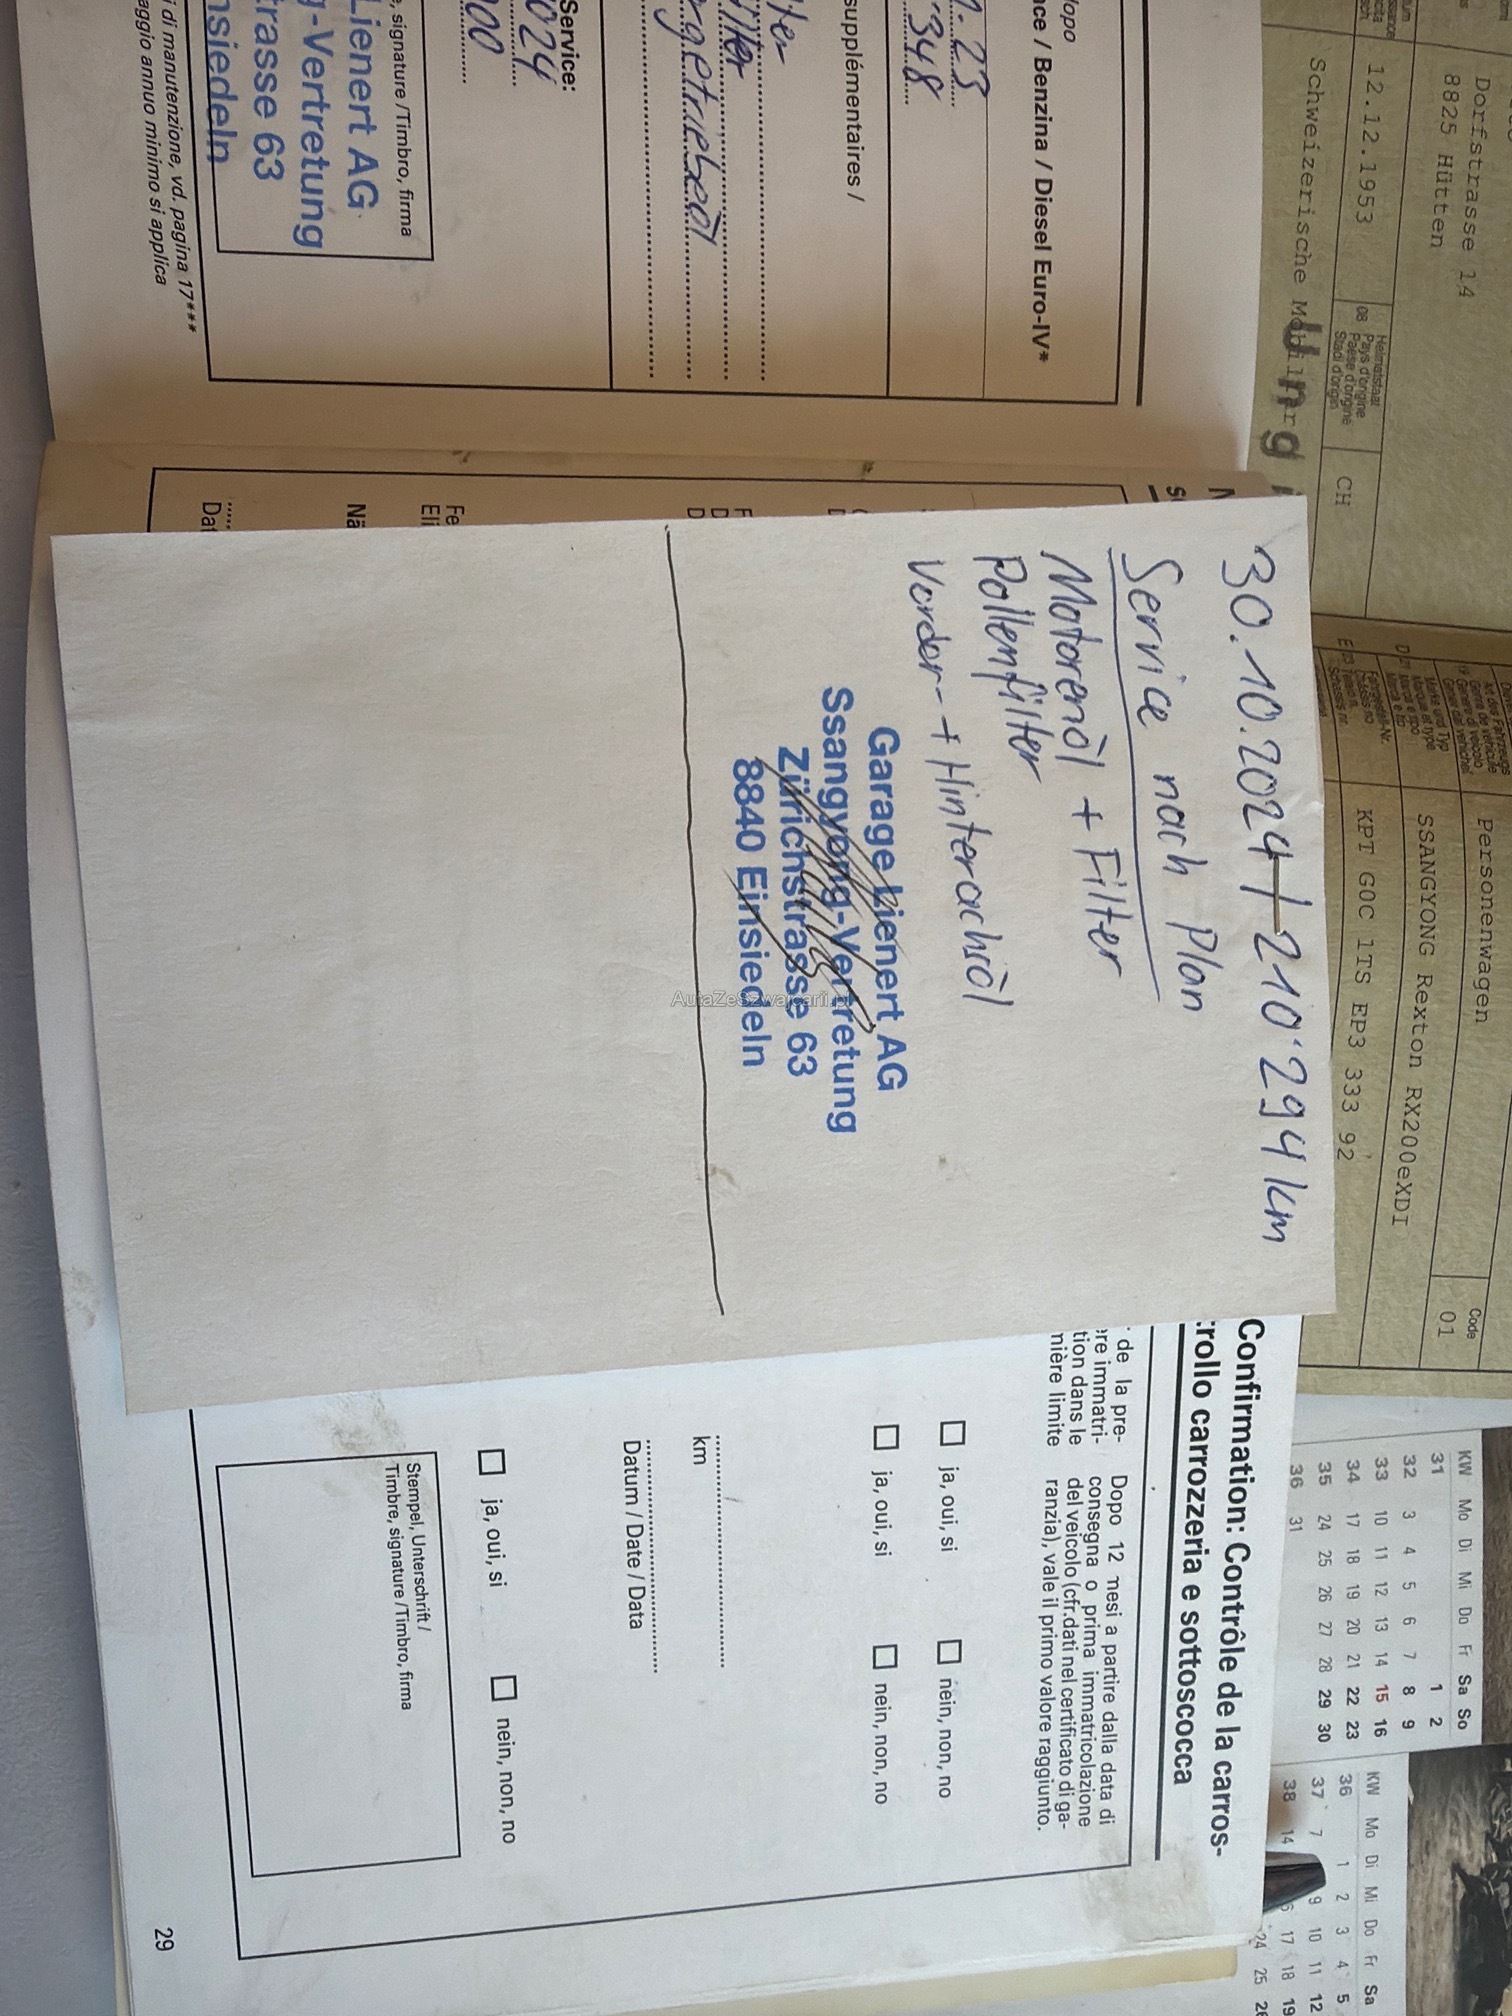 Dorfstrasse 14
8825 Hütten
12.12.1953
Heimatstaat
08 Pays d'origine
Paese d'origine
Stadi d'origin
CH
Schweizerische
Personenwagen
Code
01
SSANGYONG Rexton RX200eXDI
KPT G0C 1TS EP3 333 92
30.10.2024 / 210'294 km
Service nach Plan
Motorenöl + Filter
Pollenfilter
Vorder- + Hinterachsöl
Garage Lienert AG
Ssangyong-Vertretung
Zürichstrasse 63
8840 Einsiedeln
AutaZeSzwajcarii.pl
ce / Benzina / Diesel Euro-IV*
supplémentaires /
Service:
, signature /Timbro, firma
Lienert AG
-Vertretung
rasse 63
nsiedeln
i di manutenzione, vd. pagina 17***
aggio annuo minimo si applica
Confirmation: Contrôle de la carros-
rollo carrozzeria e sottoscocca
de la pre-
re immatri-
tion dans le
nière limite
Dopo 12 mesi a partire dalla data di
consegna o prima immatricolazione
del veicolo (cfr.dati nel certificato di ga-
ranzia), vale il primo valore raggiunto.
ja, oui, si nein, non, no
ja, oui, si nein, non, no
km
Datum / Date / Data
ja, oui, si nein, non, no
Stempel, Unterschrift /
Timbre, signature /Timbro, firma
29
KW Mo Di Mi Do Fr Sa So
31 1 2
32 3 4 5 6 7 8 9
33 10 11 12 13 14 15 16
34 17 18 19 20 21 22 23
35 24 25 26 27 28 29 30
36 31
KW Mo Di Mi Do Fr Sa
36 1 2 3 4 5
37 7 9 10 11 12
38 14 17 18 19
24 25